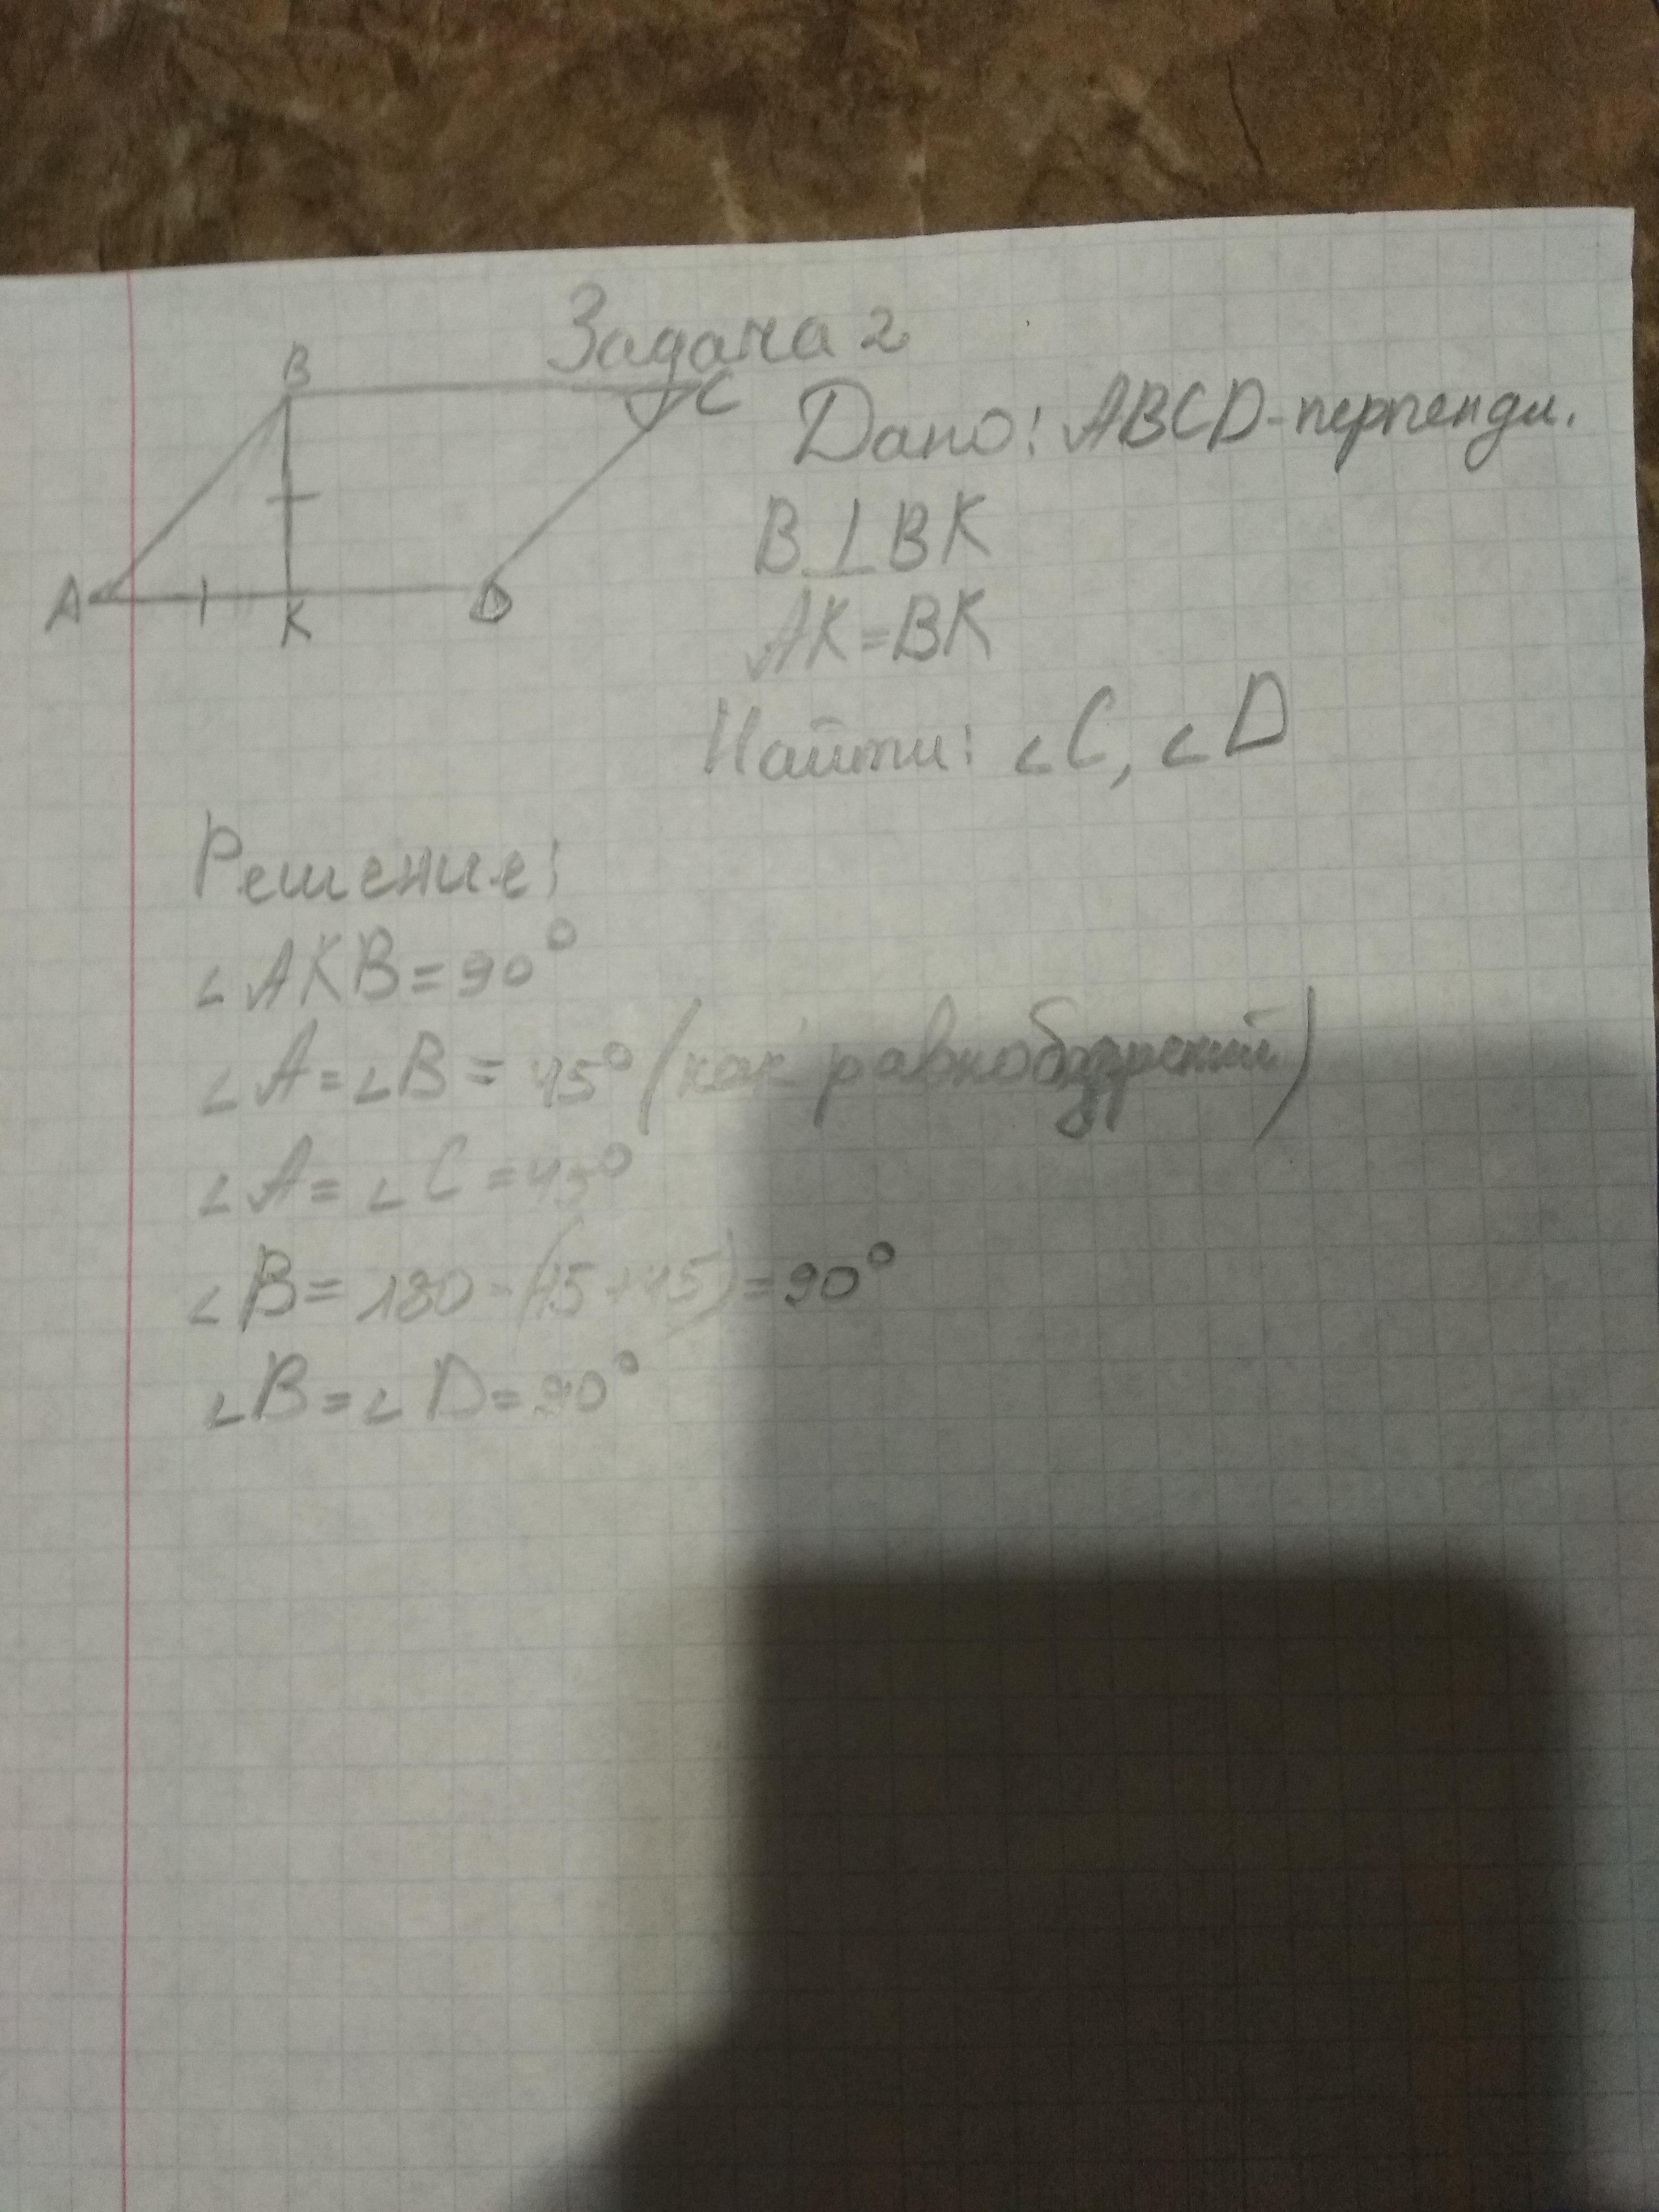 Задача 2
B
C
A
K
D
Дано: ABCD-перпенди.
B⊥BK
AK=BK
Найти: ∠C, ∠D
Решение:
∠AKB=90°
∠A=∠B=45° (как)
∠A=∠C=45°
∠B=180-(45+45)=90°
∠B=∠D=90°